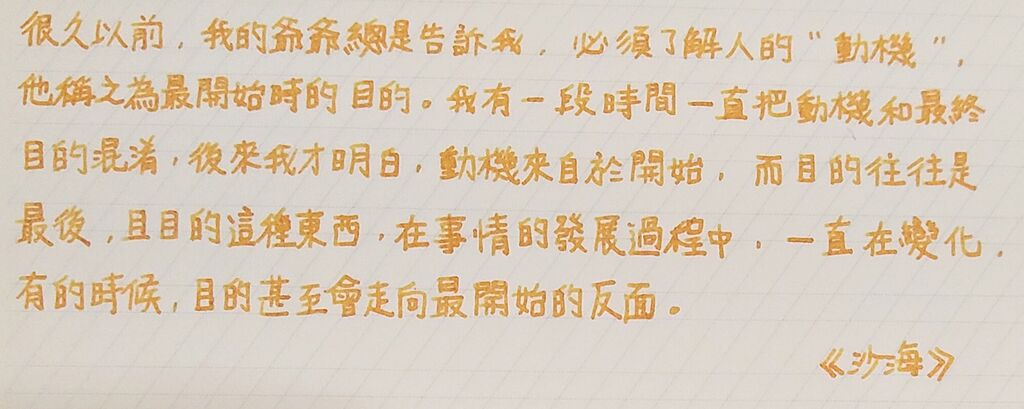 很久以前，我的爺爺總是告訴我，必須了解人的“動機”，
他稱之為最開始時的目的。我有一段時間一直把動機和最終
目的混淆，後來我才明白，動機來自於開始，而目的往往是
最後，且目的這種東西，在事情的發展過程中，一直在變化，
有的時候，目的甚至會走向最開始的反面。
《沙海》